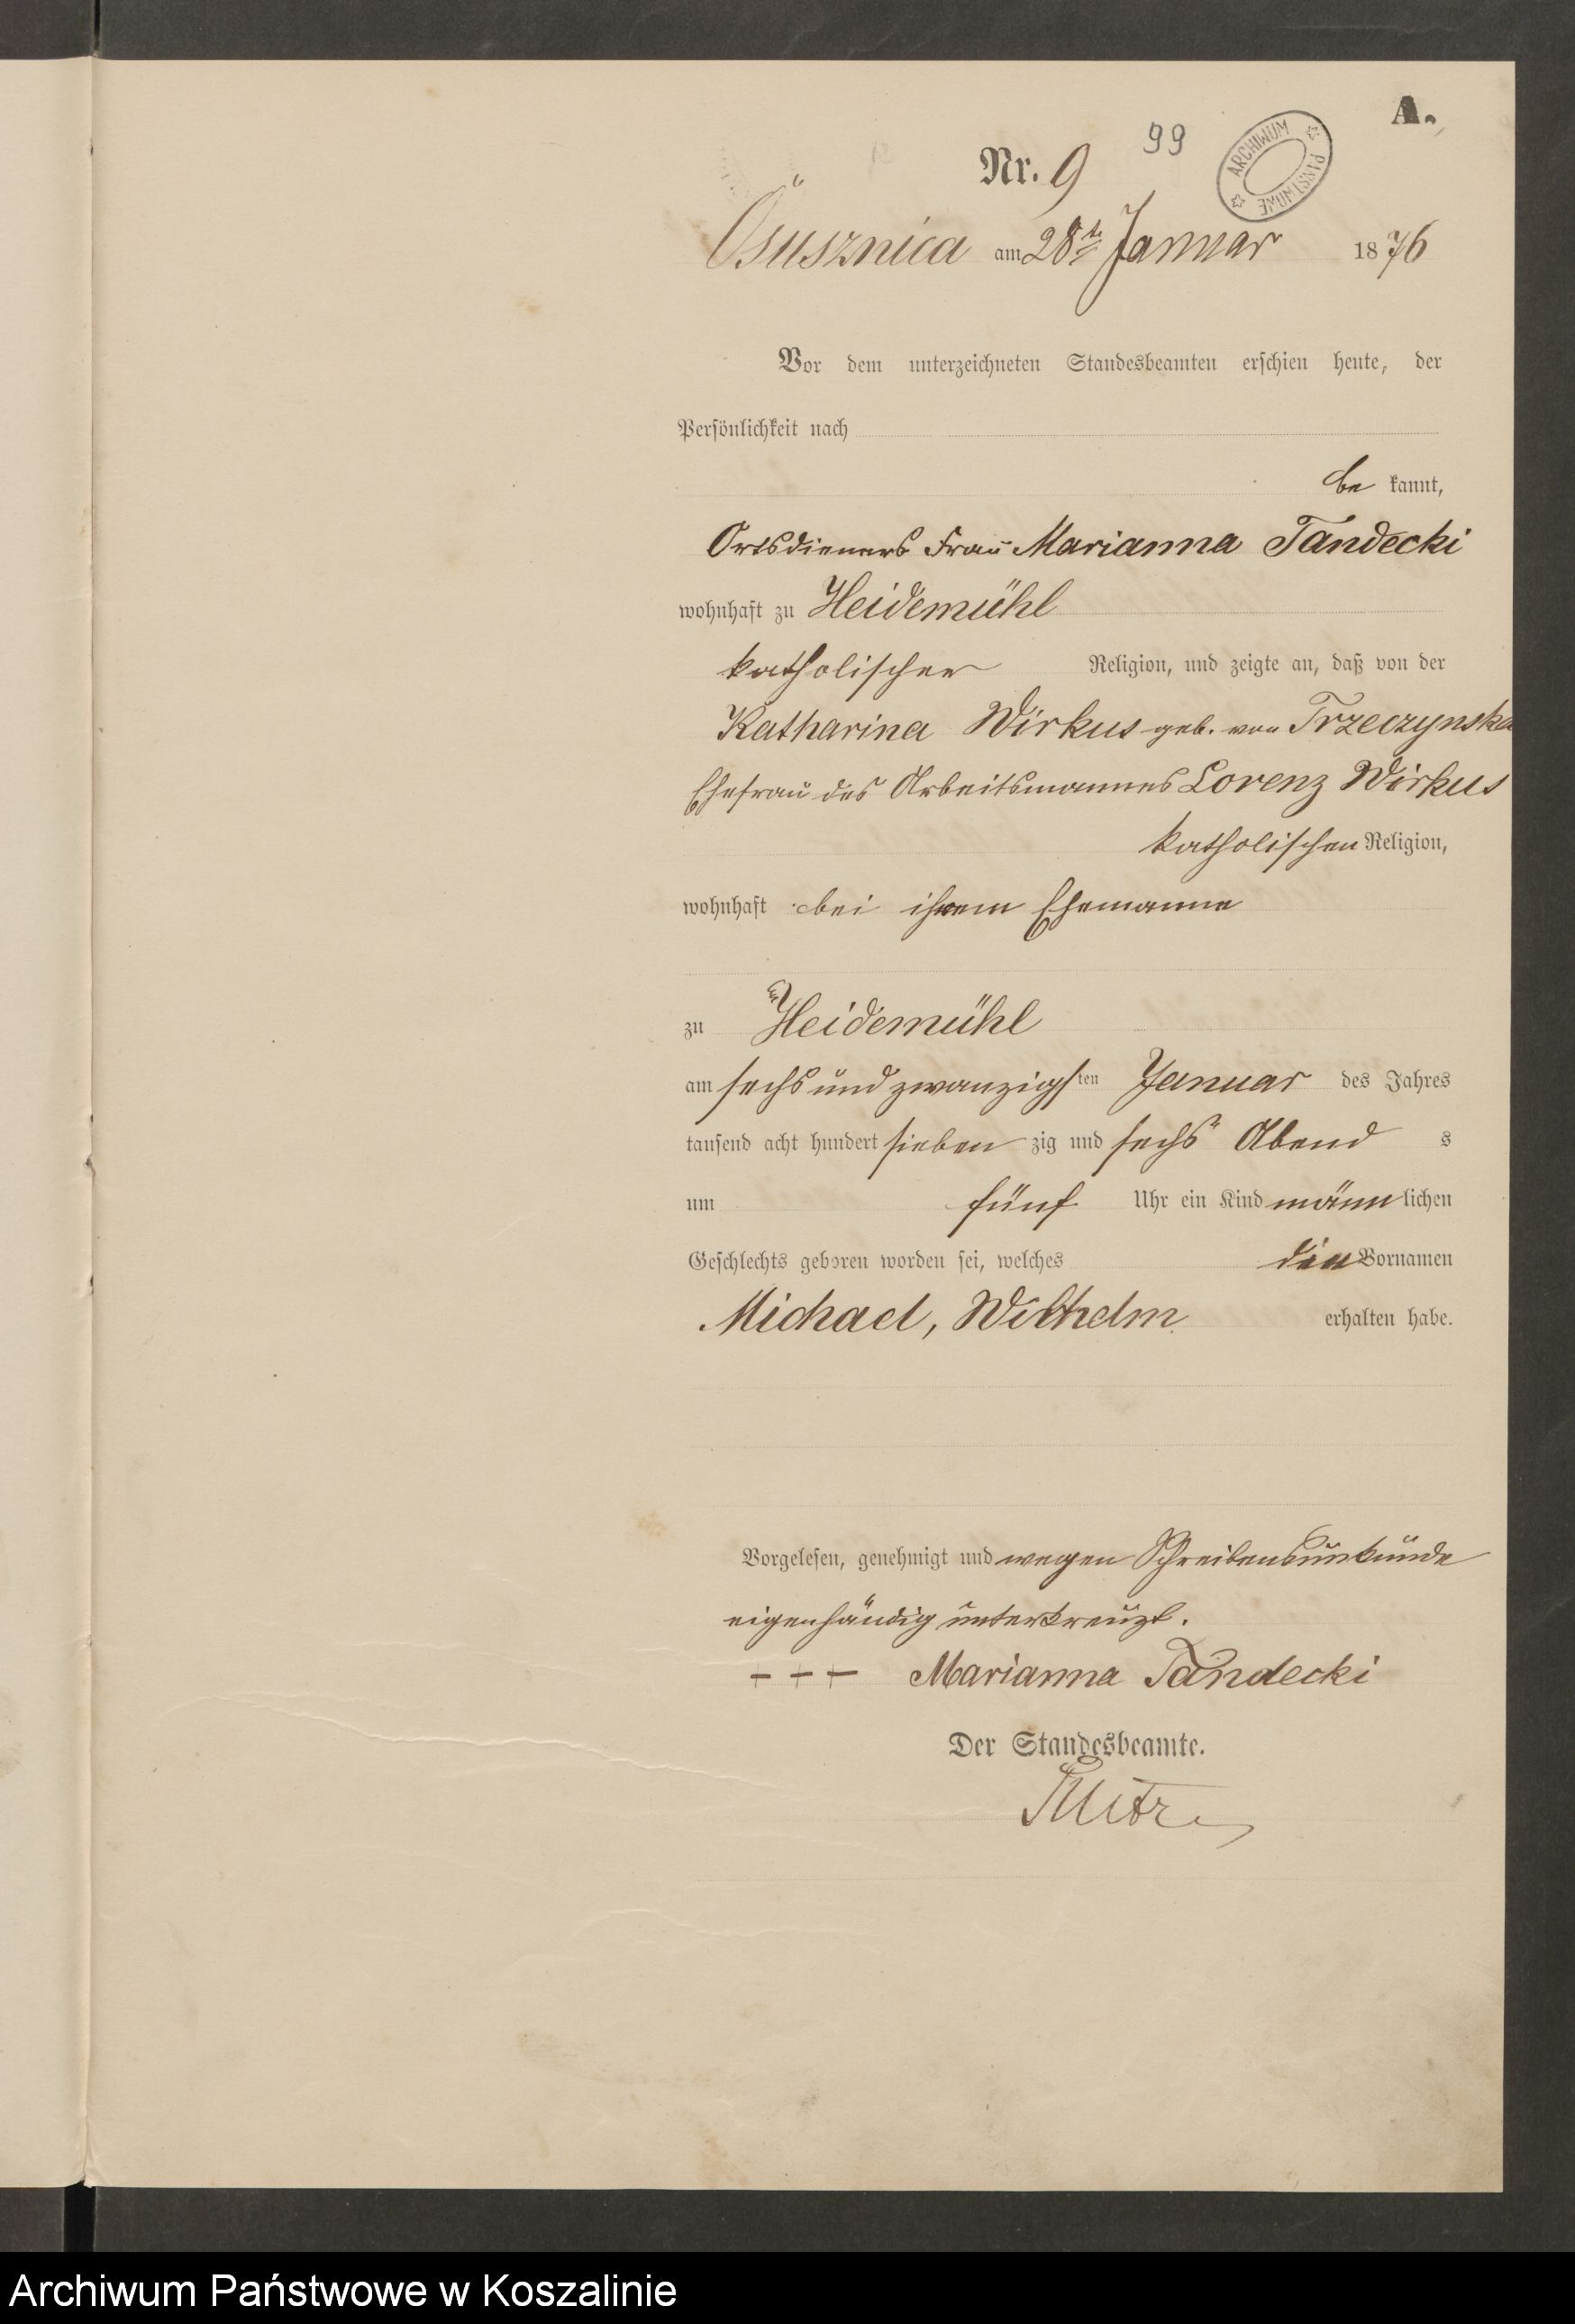 A.
Nr. 9
99
ARCHIWUM PAŃSTWOWE
Ósusznica am 28t Januar 1876
Vor dem unterzeichneten Standesbeamten erschien heute, der
Persönlichkeit nach
be kannt,
Ortsdieners Frau Marianna Tandecki
wohnhaft zu Heidemühl
katholischer Religion, und zeigte an, daß von der
Katharina Wirkus geb. von Trzeczynska
Ehefrau des Arbeitsmannes Lorenz Wirkus
katholischen Religion,
wohnhaft bei ihrem Ehemanne
zu Heidemühl
am sechs und zwanzigsten Januar des Jahres
tausend acht hundert sieben zig und sechs Abend s
um fünf Uhr ein Kind männ lichen
Geschlechts geboren worden sei, welches die Vornamen
Michael, Wilhelm erhalten habe.
Vorgelesen, genehmigt und wegen Schreibensunkunde
eigenhändig unterkreuzt.
+ + + Marianna Tandecki
Der Standesbeamte.
Archiwum Państwowe w Koszalinie